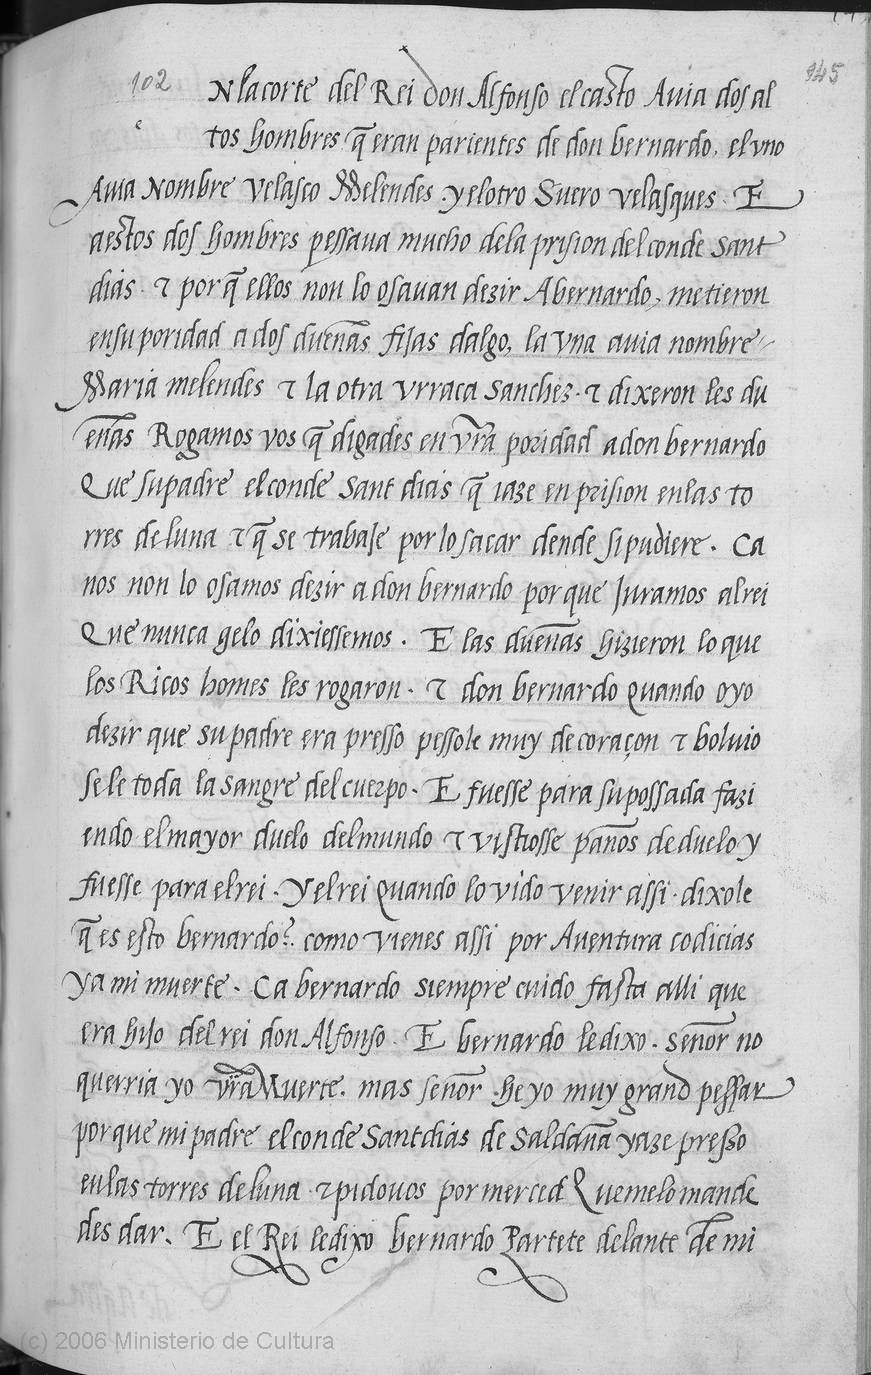 102
945
e
N la corte del Rei don Alfonso el casto Auia dos al
tos hombres q̄ eran parientes de don bernardo, el vno
Auia Nombre Velasco Melendes . y el otro Suero velasques . E
aestos dos hombres pessaua mucho dela prision del conde Sant
dias . τ por q̄ ellos non lo osauan dezir Abernardo, metieron
ensu poridad a dos dueñas fijas dalgo, la vna auia nombre
Maria melendes τ la otra vrraca Sanchez . τ dixeron les du
eñas Rogamos vos q̄ digades en vr̄a poridad adon bernardo
Que su padre el conde Sant dias q̄ iaze en prision enlas to
rres de luna τ q̄ se trabaje por lo sacar dende si pudiere . Ca
nos non lo osamos dezir a don bernardo por que Juramos al rei
Que nunca gelo dixiessemos . E las dueñas hizieron lo que
los Ricos homes les rogaron . τ don bernardo quando oyo
dezir que su padre era presso pessole muy de coraçon τ boluio
sele toda la sangre del cuerpo . E fuesse para su possada fazi
endo el mayor duelo del mundo τ vistiosse paños de duelo y
fuesse para el rei . Y el rei quando lo vido venir assi . dixole
q̄ es esto bernardo? . como vienes assi por Auentura codicias
ya mi muerte . Ca bernardo siempre cuido fasta alli que
era hijo del rei don Alfonso . E bernardo le dixo . señor no
querria yo vr̄a Muerte . mas señor . he yo muy grand pessar
por que mi padre el conde Sant dias de Saldaña yaze presso
enlas torres de luna . τ pidouos por merced Que melo mande
des dar . E el Rei le dixo bernardo Partete delante de mi
(c) 2006 Ministerio de Cultura